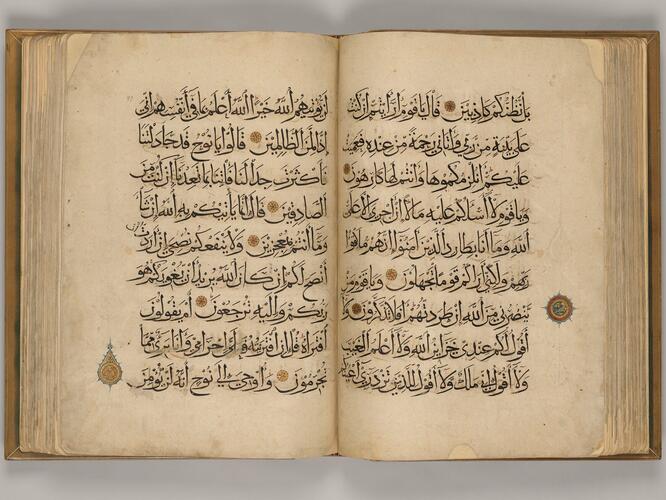 بل نظنكم كاذبين قال يا قوم أرأيتم إن كنت
على بينة من ربي وآتاني رحمة من عنده فعميت
عليكم أنلزمكموها وأنتم لها كارهون
ويا قوم لا أسألكم عليه مالا إن أجري إلا على
الله وما أنا بطارد الذين آمنوا إنهم ملاقوا
ربهم ولكني أراكم قوما تجهلون ويا قوم من
ينصرني من الله إن طردتهم أفلا تذكرون ولا
أقول لكم عندي خزائن الله ولا أعلم الغيب
ولا أقول إني ملك ولا أقول للذين تزدري أعينكم
لن يؤتيهم الله خيرا الله أعلم بما في أنفسهم إني
إذا لمن الظالمين قالوا يا نوح قد جادلتنا
فأكثرت جدالنا فأتنا بما تعدنا إن كنت من
الصادقين قال إنما يأتيكم به الله إن شاء
وما أنتم بمعجزين ولا ينفعكم نصحي إن أردت أن
أنصح لكم إن كان الله يريد أن يغويكم هو
ربكم وإليه ترجعون أم يقولون
افتراه قل إن افتريته فعلي إجرامي وأنا بريء مما
تجرمون وأوحي إلى نوح أنه لن يؤمن